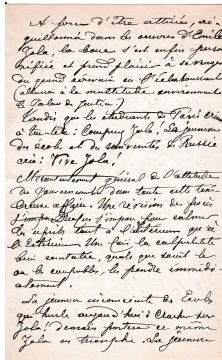 A force d'être attisée, ai-
guillonnée dans les œuvres d'Emile
Zola, la boue s'est enfin person-
nifiée et prend plaisir à se venger
du grand écrivain en l'éclaboussant
(allusion à la multitude environnant
le Palais de Justice)
Tandis que les étudiants de Paris crient
à tue-tête : Conspuez Zola, la jeunesse
des écoles et des universités de Russie
crie : Vive Zola !
Mécontentement général de l'attitude
du Gouvernement dans toute cette
affaire. Une révision du procès
s'impose pour calmer
les esprits tant à l'intérieur qu'à
l'extérieur. Une fois la culpabilité
bien constatée, quels que soient le
ou les coupables, les pendre immédi-
atement.
La jeunesse inconsciente des Ecoles
qui hurle aujourd'hui à
Zola ! Demain portera ce même
Zola en triomphe. La jeunesse